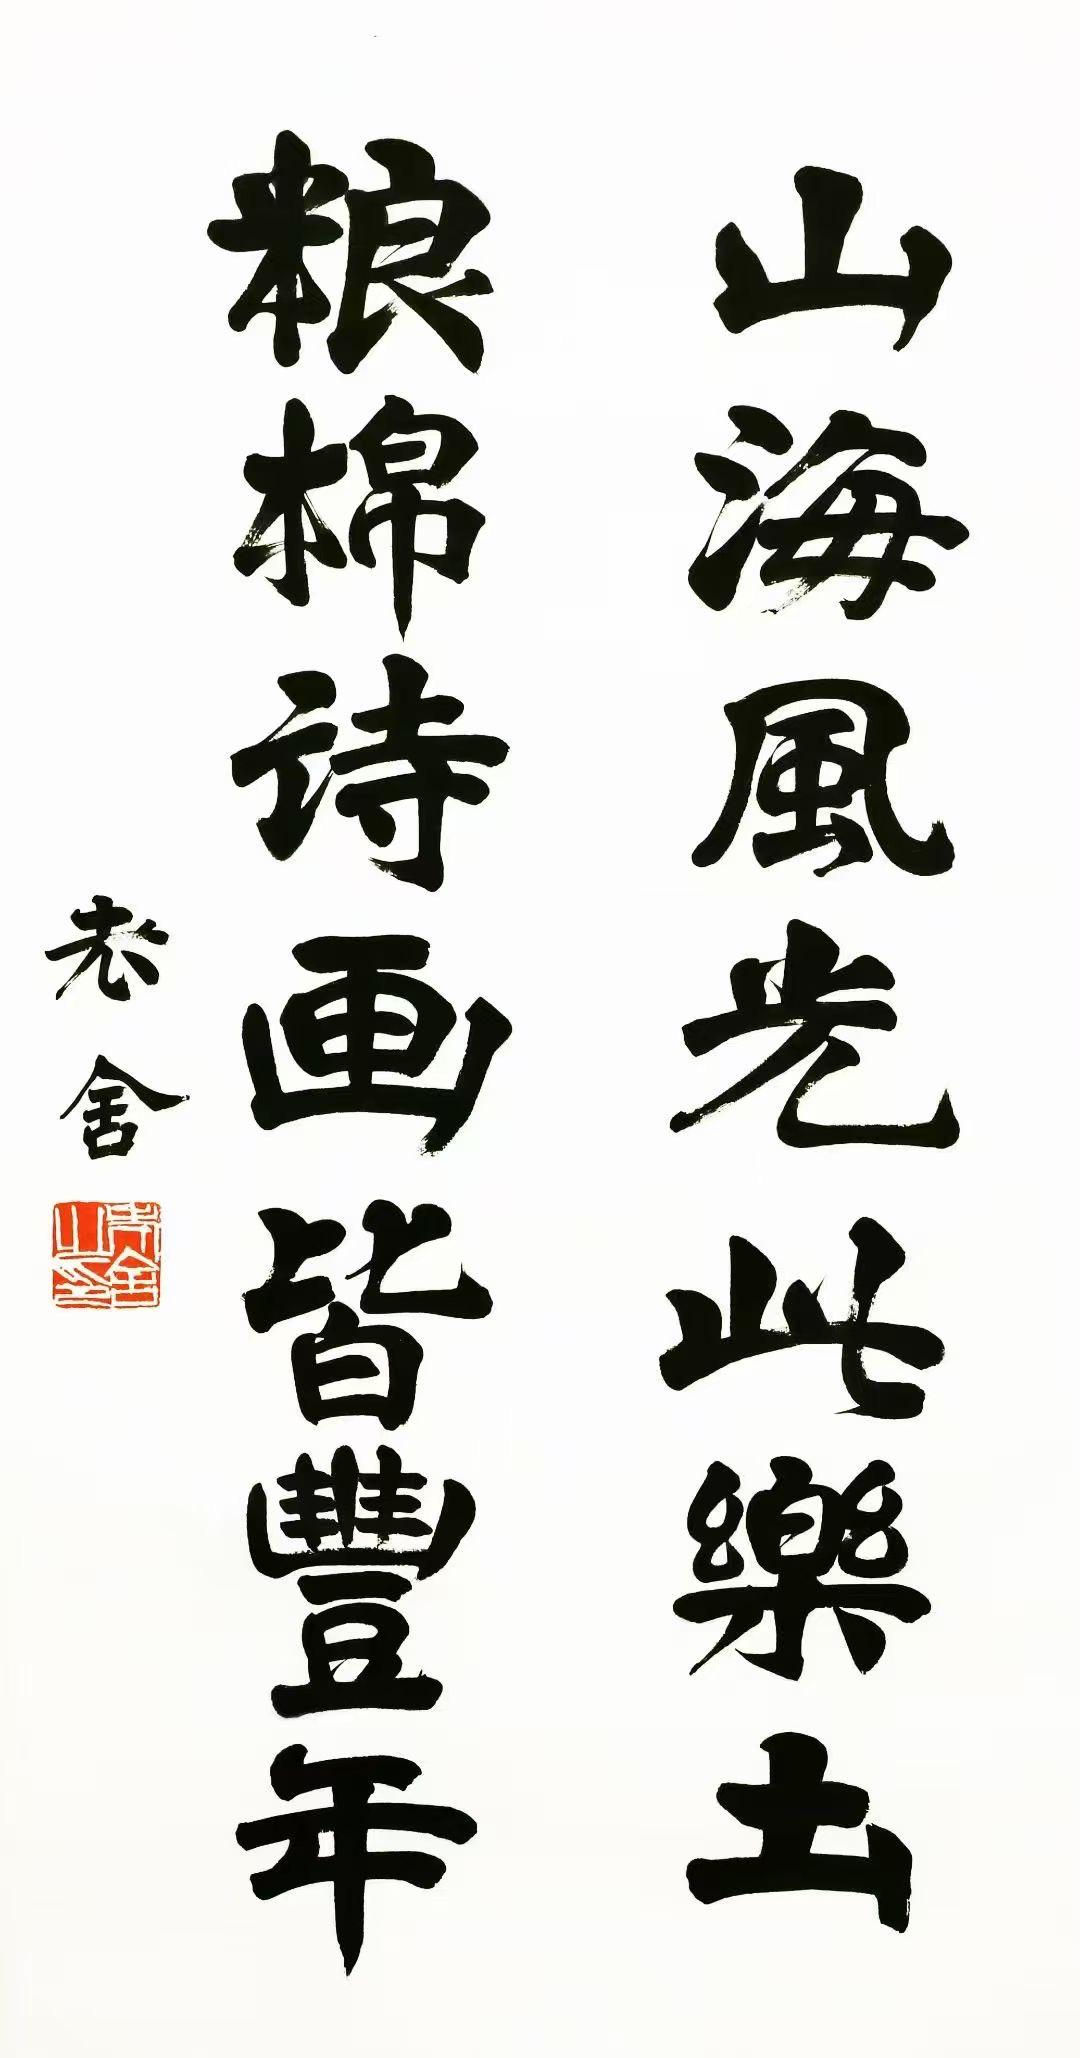 山海風光此樂土
粮棉诗画皆豐年
老舍
老舍之印